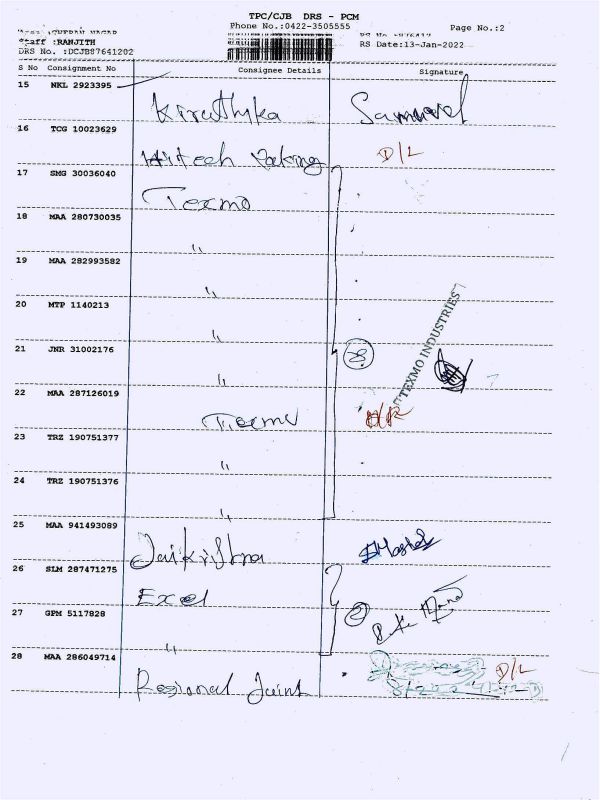 TPC/CJB DRS - PCM
Phone No.:0422-3505555
Page No.:2
Staff :RANJITH
DRS No. :DCJB87641202
RS Date:13-Jan-2022
S No Consignment No Consignee Details Signature
15 NKL 2923395 Kiruthika Samuvel
16 TCG 10023629 Hitech Paking D/L
17 SMG 30036040 Texmo
18 MAA 280730035 "
19 MAA 282993582 "
20 MTP 1140213 "
21 JNR 31002176 " 8
TEXMO INDUSTRIES
22 MAA 287126019 Texmo
23 TRZ 190751377 "
24 TRZ 190751376 "
25 MAA 941493089 Jaikrishna
26 SLM 287471275 Excel
27 GPM 5117828 " 2
28 MAA 286049714 Regional Joint D/L